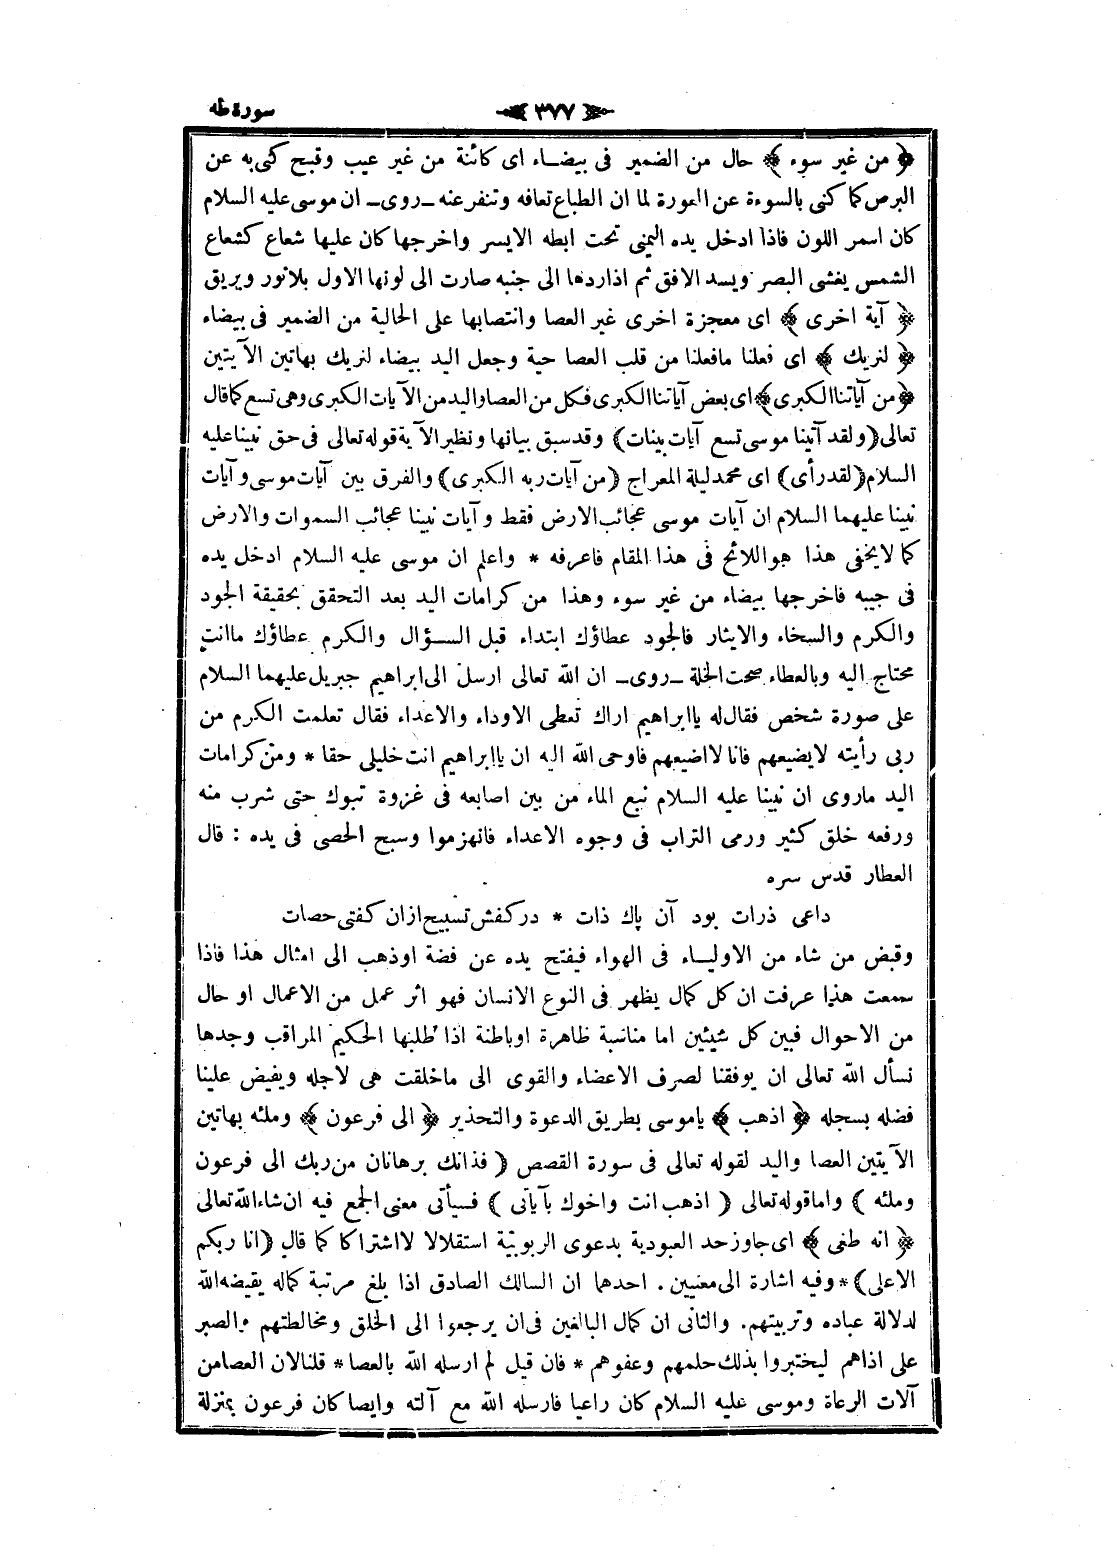 سورة طه
﴿ ٣٧٧ ﴾
﴿ من غير سوء ﴾ حال من الضمير فى بيضاء اى كائنة من غير عيب وقبح كنى به عن
البرص كما كنى بالسوءة عن العورة لما ان الطباع تعافه وتنفر عنه ـ روى ـ ان موسى عليه السلام
كان اسمر اللون فاذا ادخل يده اليمنى تحت ابطه الايسر واخرجها كان عليها شعاع كشعاع
الشمس يغشى البصر ويسد الافق ثم اذا ردها الى جنبه صارت الى لونها الاول بلا نور وبريق
﴿ آية اخرى ﴾ اى معجزة اخرى غير العصا وانتصابها على الحالية من الضمير فى بيضاء
﴿ لنريك ﴾ اى فعلنا مافعلنا من قلب العصا حية وجعل اليد بيضاء لنريك بهاتين الآيتين
﴿ من آياتنا الكبرى ﴾ اى بعض آياتنا الكبرى فكل من العصا واليد من الآيات الكبرى وهى تسع كما قال
تعالى (ولقد آتينا موسى تسع آيات بينات) وقد سبق بيانها ونظير الآية قوله تعالى فى حق نبينا عليه
السلام (لقد رأى) اى محمد ليلة المعراج (من آيات ربه الكبرى) والفرق بين آيات موسى وآيات
نبينا عليهما السلام ان آيات موسى عجائب الارض فقط وآيات نبينا عجائب السموات والارض
كما لايخفى هذا هو اللائح فى هذا المقام فاعرفه * واعلم ان موسى عليه السلام ادخل يده
فى جيبه فاخرجها بيضاء من غير سوء وهذا من كرامات اليد بعد التحقق بحقيقة الجود
والكرم والسخاء والايثار فالجود عطاؤك ابتداء قبل السؤال والكرم عطاؤك ماانت
محتاج اليه وبالعطاء صحت الخلة ـ روى ـ ان الله تعالى ارسل الى ابراهيم جبريل عليهما السلام
على صورة شخص فقال له ياابراهيم اراك تعطى الاوداء والاعداء فقال تعلمت الكرم من
ربى رأيته لايضيعهم فانا لااضيعهم فاوحى الله اليه ان ياابراهيم انت خليلى حقا * ومن كرامات
اليد ماروى ان نبينا عليه السلام نبع الماء من بين اصابعه فى غزوة تبوك حتى شرب منه
ورفعه خلق كثير ورمى التراب فى وجوه الاعداء فانهزموا وسبح الحصى فى يده : قال
العطار قدس سره
داعى ذرات بود آن پاك ذات * در كفش تسبيح ازان كفتى حصات
وقبض من شاء من الاولياء فى الهواء فيفتح يده عن فضة او ذهب الى امثال هذا فاذا
سمعت هذا عرفت ان كل كمال يظهر فى النوع الانسان فهو اثر عمل من الاعمال او حال
من الاحوال فبين كل شيئين اما مناسبة ظاهرة او باطنة اذا طلبها الحكيم المراقب وجدها
نسأل الله تعالى ان يوفقنا لصرف الاعضاء والقوى الى ماخلقت هى لاجله ويفيض علينا
فضله بسجله ﴿ اذهب ﴾ ياموسى بطريق الدعوة والتحذير ﴿ الى فرعون ﴾ وملئه بهاتين
الآيتين العصا واليد لقوله تعالى فى سورة القصص ( فذانك برهانان من ربك الى فرعون
وملئه ) واما قوله تعالى ( اذهب انت واخوك بآياتى ) فسيأتى معنى الجمع فيه ان شاء الله تعالى
﴿ انه طغى ﴾ اى جاوز حد العبودية بدعوى الربوبية استقلالا لااشتراكا كما قال (انا ربكم
الاعلى) * وفيه اشارة الى معنيين . احدهما ان السالك الصادق اذا بلغ مرتبة كماله يقيضه الله
لدلالة عباده وتربيتهم. والثانى ان كمال البالغين فى ان يرجعوا الى الخلق ومخالطتهم والصبر
على اذاهم ليختبروا بذلك حلمهم وعفوهم * فان قيل لم ارسله الله بالعصا * قلنا لان العصا من
آلات الرعاة وموسى عليه السلام كان راعيا فارسله الله مع آلته وايضا كان فرعون بمنزلة